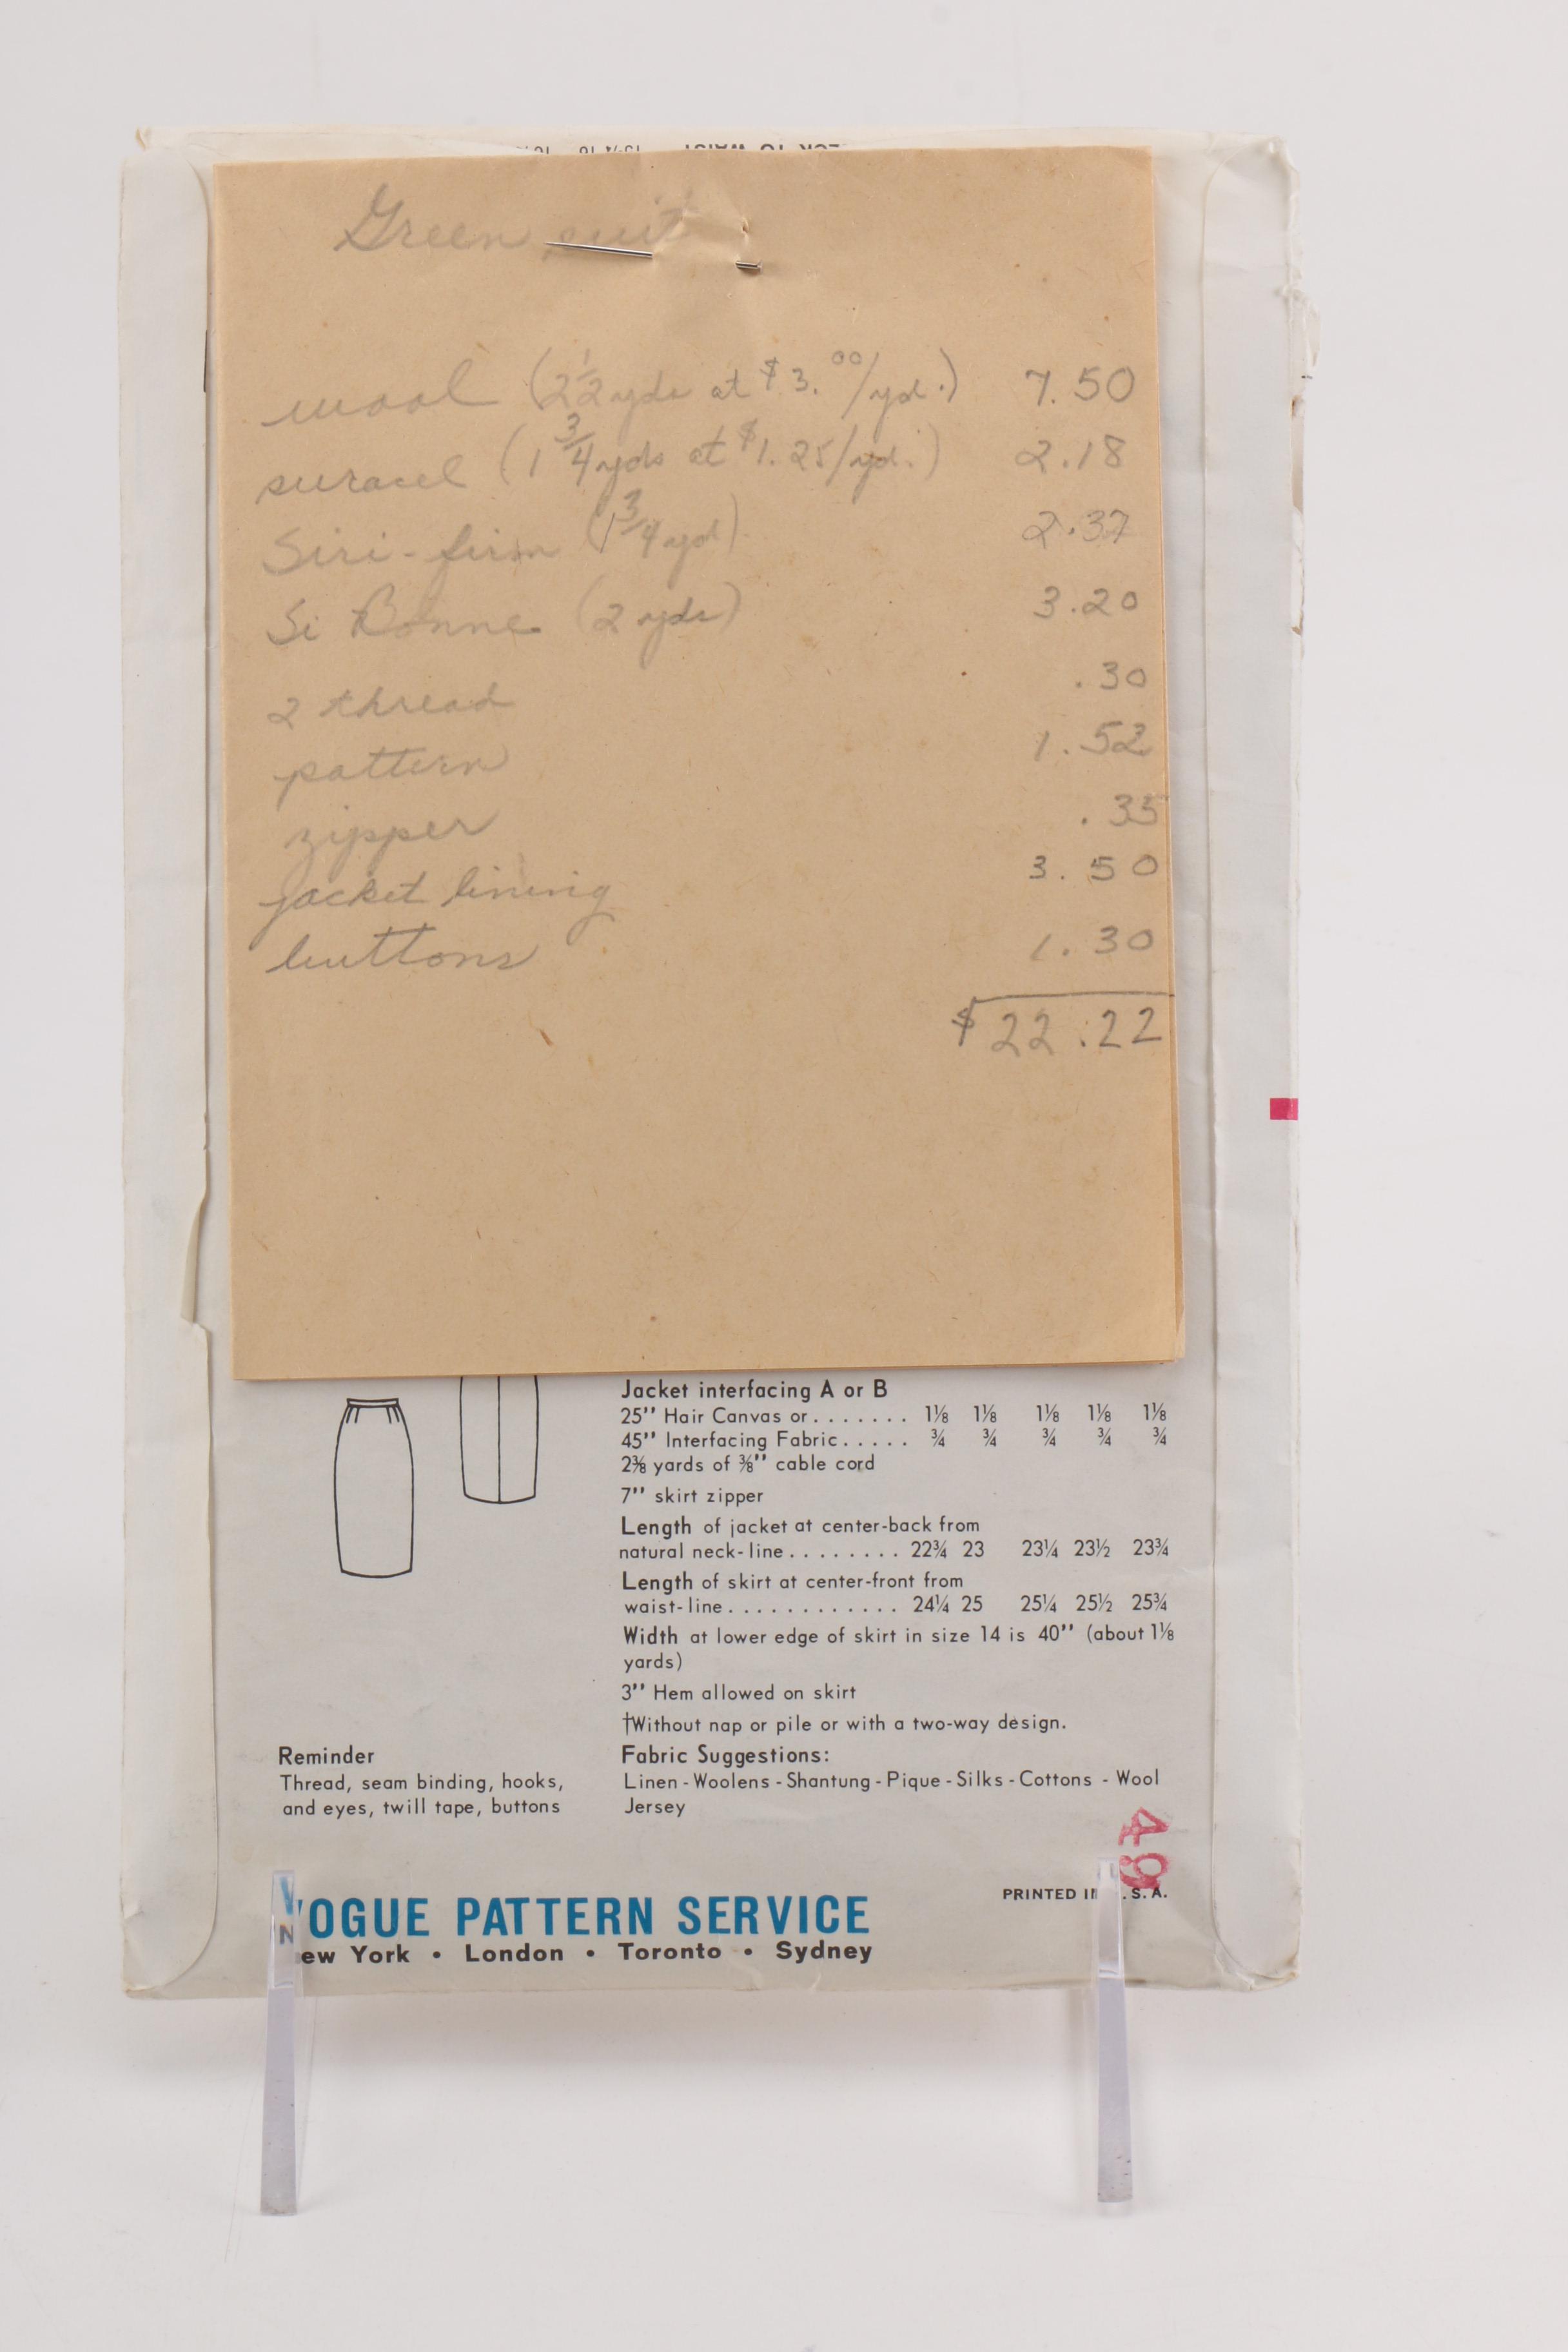 Green suit
wool (2 1/2 yds at $3.00/yd.) 7.50
suracel (1 3/4 yds at $1.25/yd.) 2.18
Siri-firm (1 3/4 yd) 2.37
Si Bonne (2 yds) 3.20
2 thread .30
pattern 1.52
zipper .35
jacket lining 3.50
buttons 1.30
$22.22
Jacket interfacing A or B
25" Hair Canvas or....... 1⅛ 1⅛ 1⅛ 1⅛ 1⅛
45" Interfacing Fabric..... ¾ ¾ ¾ ¾ ¾
2⅜ yards of ⅜" cable cord
7" skirt zipper
Length of jacket at center-back from
natural neck-line........ 22¾ 23 23¼ 23½ 23¾
Length of skirt at center-front from
waist-line............ 24¼ 25 25¼ 25½ 25¾
Width at lower edge of skirt in size 14 is 40" (about 1⅛
yards)
3" Hem allowed on skirt
†Without nap or pile or with a two-way design.
Reminder
Thread, seam binding, hooks,
and eyes, twill tape, buttons
Fabric Suggestions:
Linen - Woolens - Shantung - Pique - Silks - Cottons - Wool
Jersey
49
VOGUE PATTERN SERVICE
New York • London • Toronto • Sydney
PRINTED IN U.S.A.